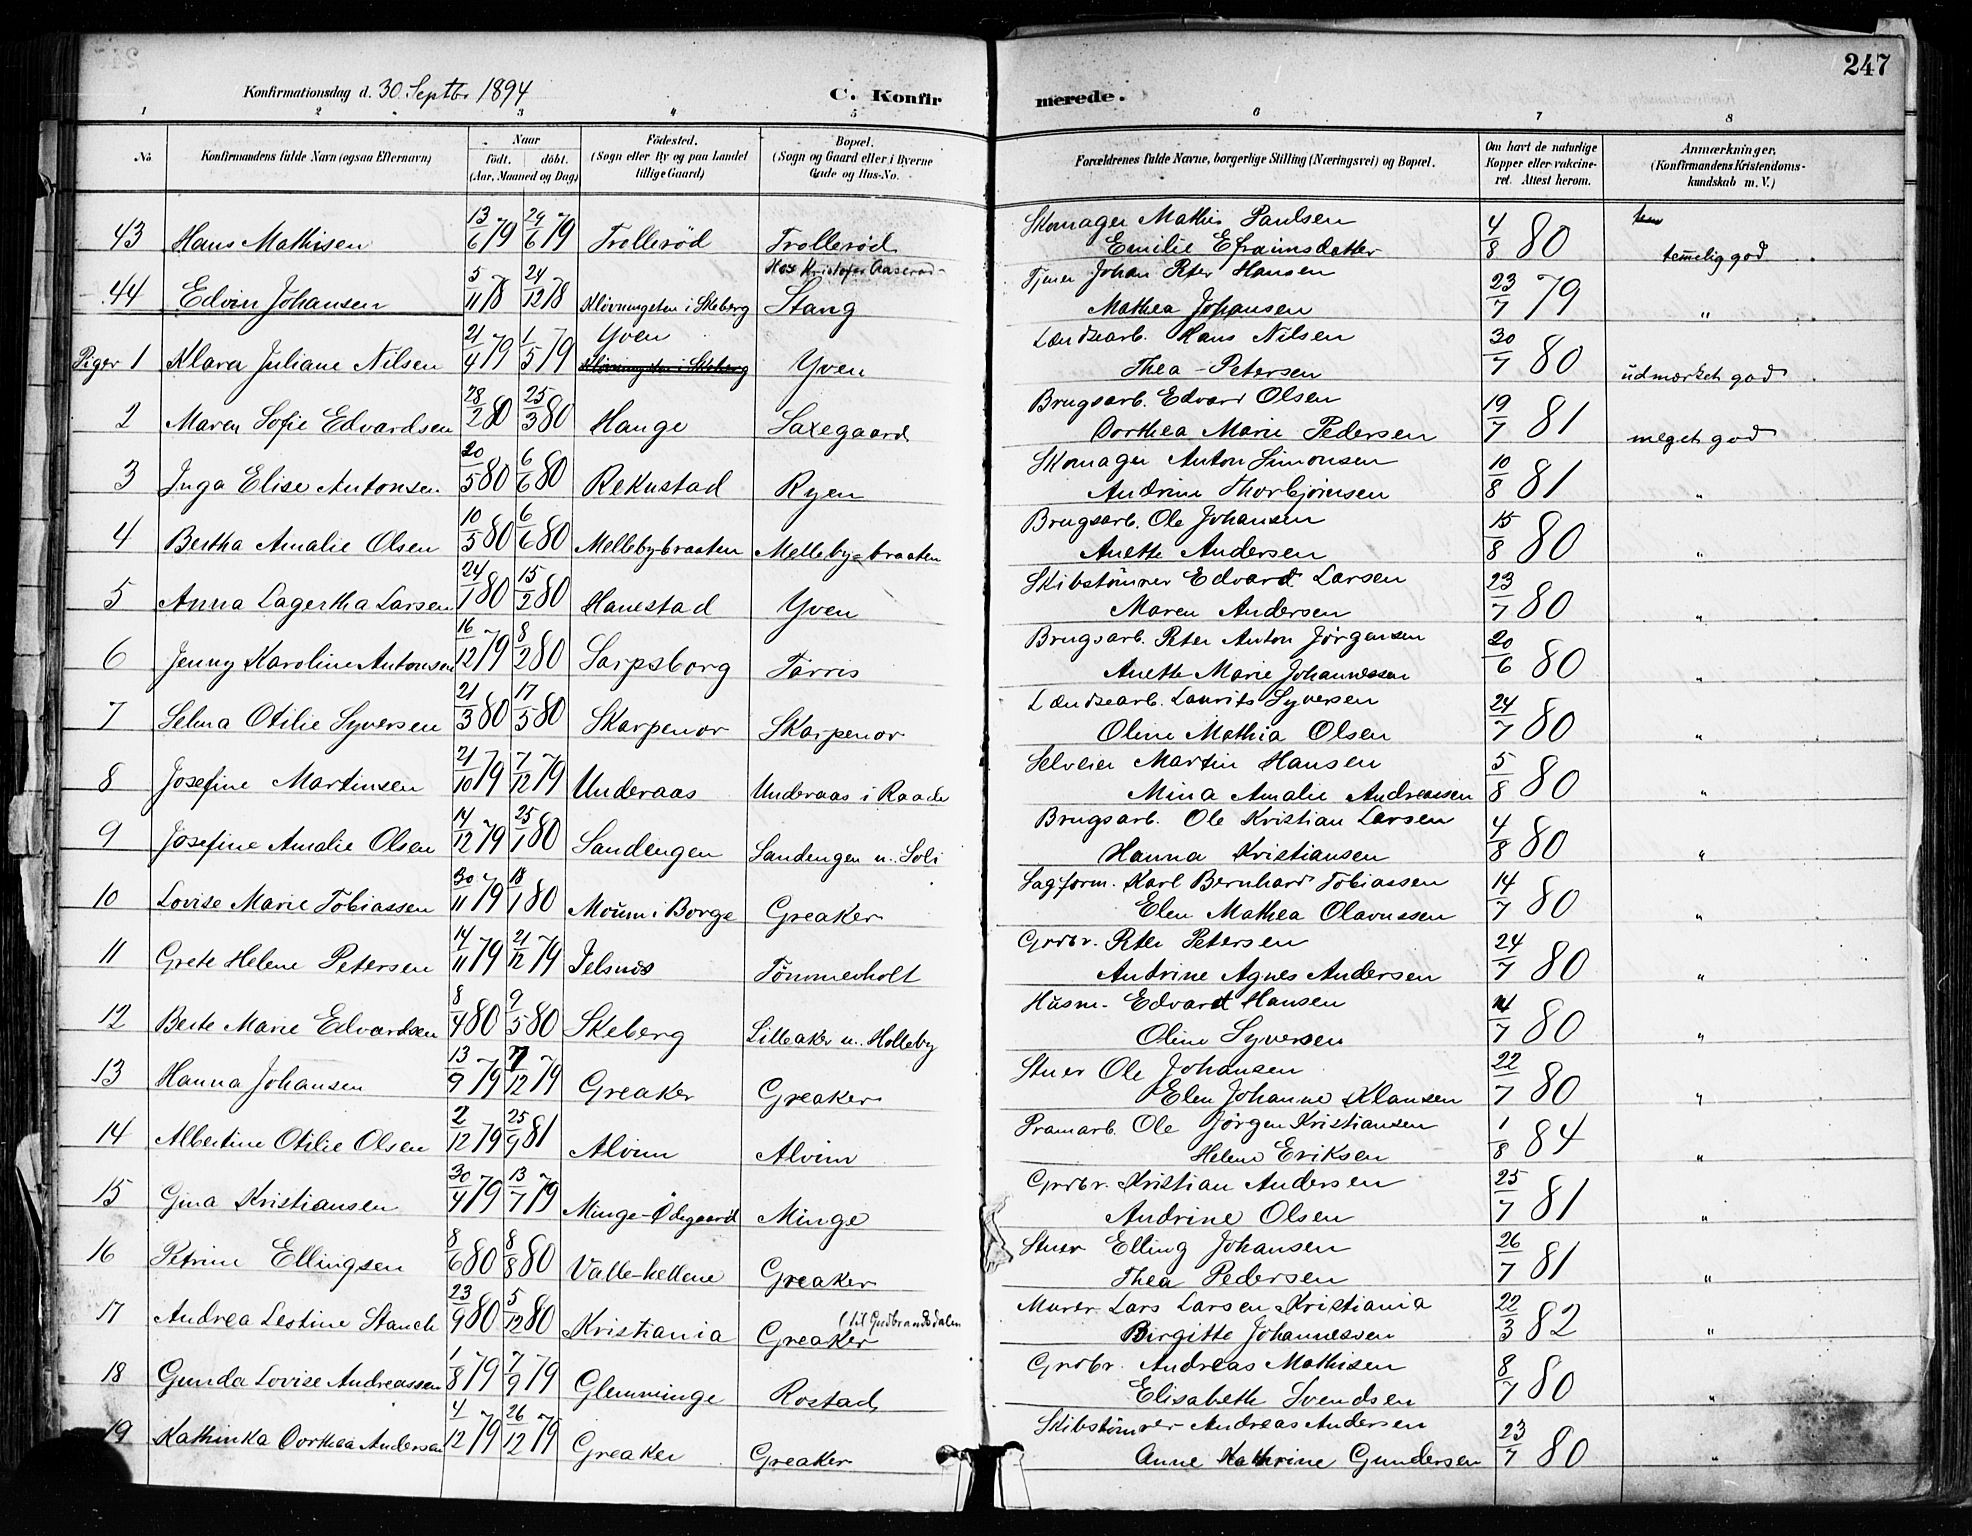 247
Konfirmationsdag d. 30. Septbr 1894
C. Konfirmerede.
1 2 3 4 5 6 7 8
No Konfirmandens fulde Navn (ogsaa Efternavn) Naar födt. döbt. (Aar, Maaned og Dag) Födested. (Sogn eller By og paa Landet tillige Gaard) Bopæl. (Sogn og Gaard eller i Byerne Gade og Hus-No. Forældrenes fulde Navne, borgerlige Stilling (Næringsvei) og Bopæl. Om havt de naturlige Kopper eller vakcineret. Attest herom. Anmærkninger, (Konfirmandens Kristendomskundskab m. V.)
43 Hans Mathisen 13/6 79 29/6 79 Trollerød Trollerød Skomager Mathis Paulsen 4/8 80 temelig god
Emilie Efraimsdatter
Hos Kristofer Aaserød
44 Edvin Johansen 5/11 78 24/12 78 Kløvningsten i Skeberg Stang Tjener Johan Peter Hansen 23/7 79 "
Mathea Johansen
Piger 1 Klara Juliane Nilsen 21/4 79 1/5 79 Yven Kløvningsten i Skeberg Yven Lændsearb. Hans Nilsen 30/7 80 udmærket god
Thea Petersen
2 Maren Sofie Edvardsen 28/2 80 25/3 80 Hauge Saxegaard Brugsarb. Edvard Olsen 19/7 81 meget god
Dorthea Marie Pedersen
3 Inga Elise Antonsen 20/5 80 6/6 80 Rekustad Ryen Skomager Anton Simonsen 10/8 81 "
Andrine Thorbjørnsen
4 Bertha Amalie Olsen 10/5 80 6/6 80 Mellebybraaten Melleby-braaten Brugsarb. Ole Johansen 15/8 80 "
Anette Andersen
5 Anna Lagertha Larsen 24/1 80 15/2 80 Hanestad Yven Skibstømrer Edvard Larsen 23/7 80 "
Maren Andersen
6 Jenny Karoline Antonsen 16/12 79 8/2 80 Sarpsborg Tarris Brugsarb. Peter Anton Jørgensen 20/6 80 "
Anette Marie Johannessen
7 Selma Otilie Syversen 21/3 80 17/5 80 Skarpenor Skarpenor Lændsearb. Laurits Syversen 24/7 80 "
Oline Mathia Olsen
8 Josefine Martinsen 21/10 79 7/12 79 Underaas Underaas i Raade Selveier Martin Hansen 5/8 80 "
Mina Amalie Andreassen
9 Josefine Amalie Olsen 14/12 79 25/1 80 Sandengen Sandengen u. Soli Brugsarb. Ole Kristian Larsen 4/8 80 "
Hanna Kristiansen
10 Lovise Marie Tobiassen 30/11 79 18/1 80 Moum i Borge Greaker Sagform. Karl Bernhard Tobiassen 14/7 80 "
Elen Mathea Olavussen
11 Grete Helene Petersen 14/11 79 21/12 79 Jelsnes Tømmerholt Grdbr. Peter Petersen 24/7 80 "
Andrine Agnes Andersen
12 Berte Marie Edvardsen 8/4 80 9/5 80 Skeberg Lilleaker u. Holleby Husm. Edvard Hansen 14/7 80 "
Oline Syversen
13 Hanna Johansen 13/9 79 7/12 79 Greaker Greaker Stuer Ole Johansen 22/7 80 "
Elen Johanne Klausen
14 Albertine Otilie Olsen 2/12 79 25/9 81 Alvim Alvim Pramarb. Ole Jørgen Kristiansen 1/8 84 "
Helene Eriksen
15 Gina Kristiansen 30/4 79 13/7 79 Minge-Ødegaard Minge Grdbr. Kristian Andersen 25/7 81 "
Andrine Olsen
16 Petrine Ellingsen 8/6 80 8/8 80 Valle-hellene Greaker Stuer Elling Johansen 26/7 81 "
Thea Pedersen
17 Andrea Lestine Stanck 23/9 80 5/12 80 Kristiania Greaker (til Gudbrandsdalen Murer Lars Larsen Kristiania 22/3 82 "
Birgitte Johannessen
18 Gunda Lovise Andreassen 1/8 79 7/9 79 Glemminge Rostad Grdbr. Andreas Mathisen 8/7 80 "
Elisabeth Svendsen
19 Kathinka Dorthea Andersen 4/12 79 26/12 79 Greaker Greaker Skibstømrer Andreas Andersen 23/7 80 "
Anne Kathrine Gundersen